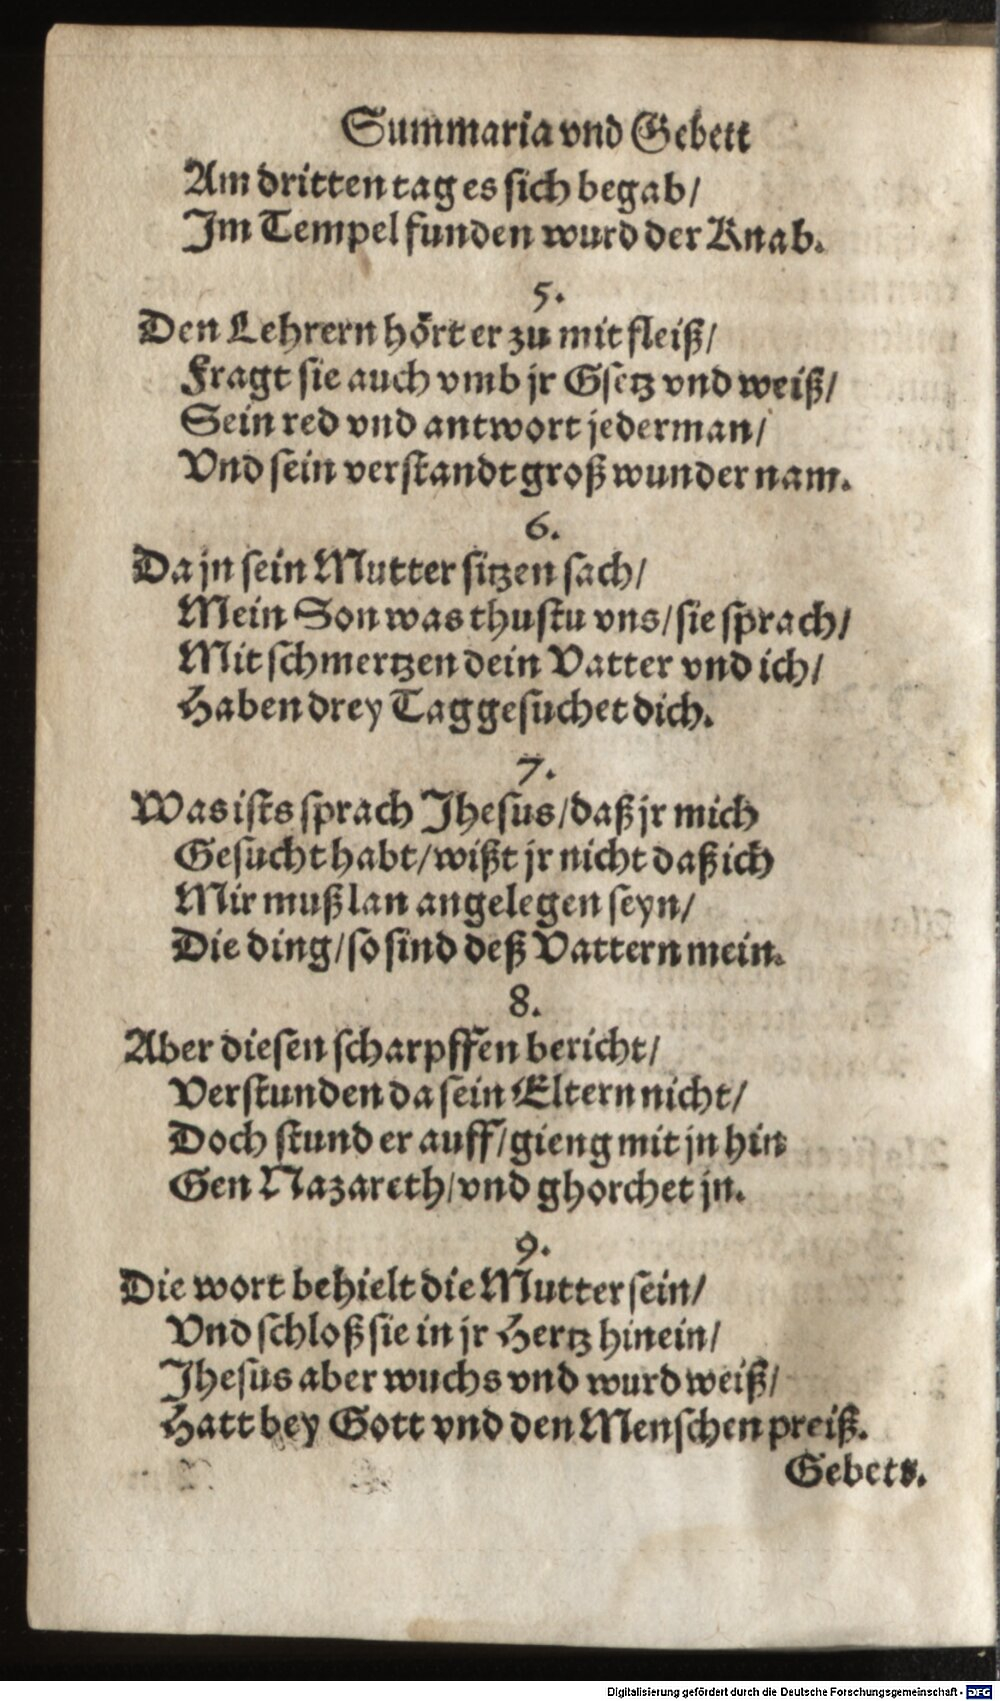 Summaria vnd Gebett
Am dritten tag es sich begab/
Im Tempel funden wurd der Knab.
5.
Den Lehrern hört er zu mit fleiß/
Fragt sie auch vmb jr Gsetz vnd weiß/
Sein red vnd antwort jederman/
Vnd sein verstandt groß wunder nam.
6.
Da jn sein Mutter sitzen sach/
Mein Son was thustu vns/ sie sprach/
Mit schmertzen dein Vatter vnd ich/
Haben drey Tag gesuchet dich.
7.
Was ists sprach Jhesus/ daß jr mich
Gesucht habt/ wißt jr nicht daß ich
Mir muß lan angelegen seyn/
Die ding/ so sind deß Vattern mein.
8.
Aber diesen scharpffen bericht/
Verstunden da sein Eltern nicht/
Doch stund er auff/ gieng mit jn hin
Gen Nazareth/ vnd ghorchet jn.
9.
Die wort behielt die Mutter sein/
Vnd schloß sie in jr Hertz hinein/
Jhesus aber wuchs vnd wurd weiß/
Hatt bey Gott vnd den Menschen preiß.
Gebets.
Digitalisierung gefördert durch die Deutsche Forschungsgemeinschaft - DFG